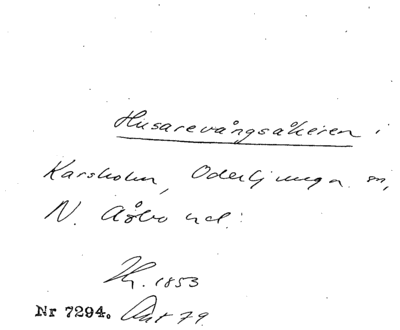 Husarevångsåkeren i
Karsholm, Oderljunga sn,
N. Åsbo hd.
Hy. 1853
Nr 7294. Akt 79